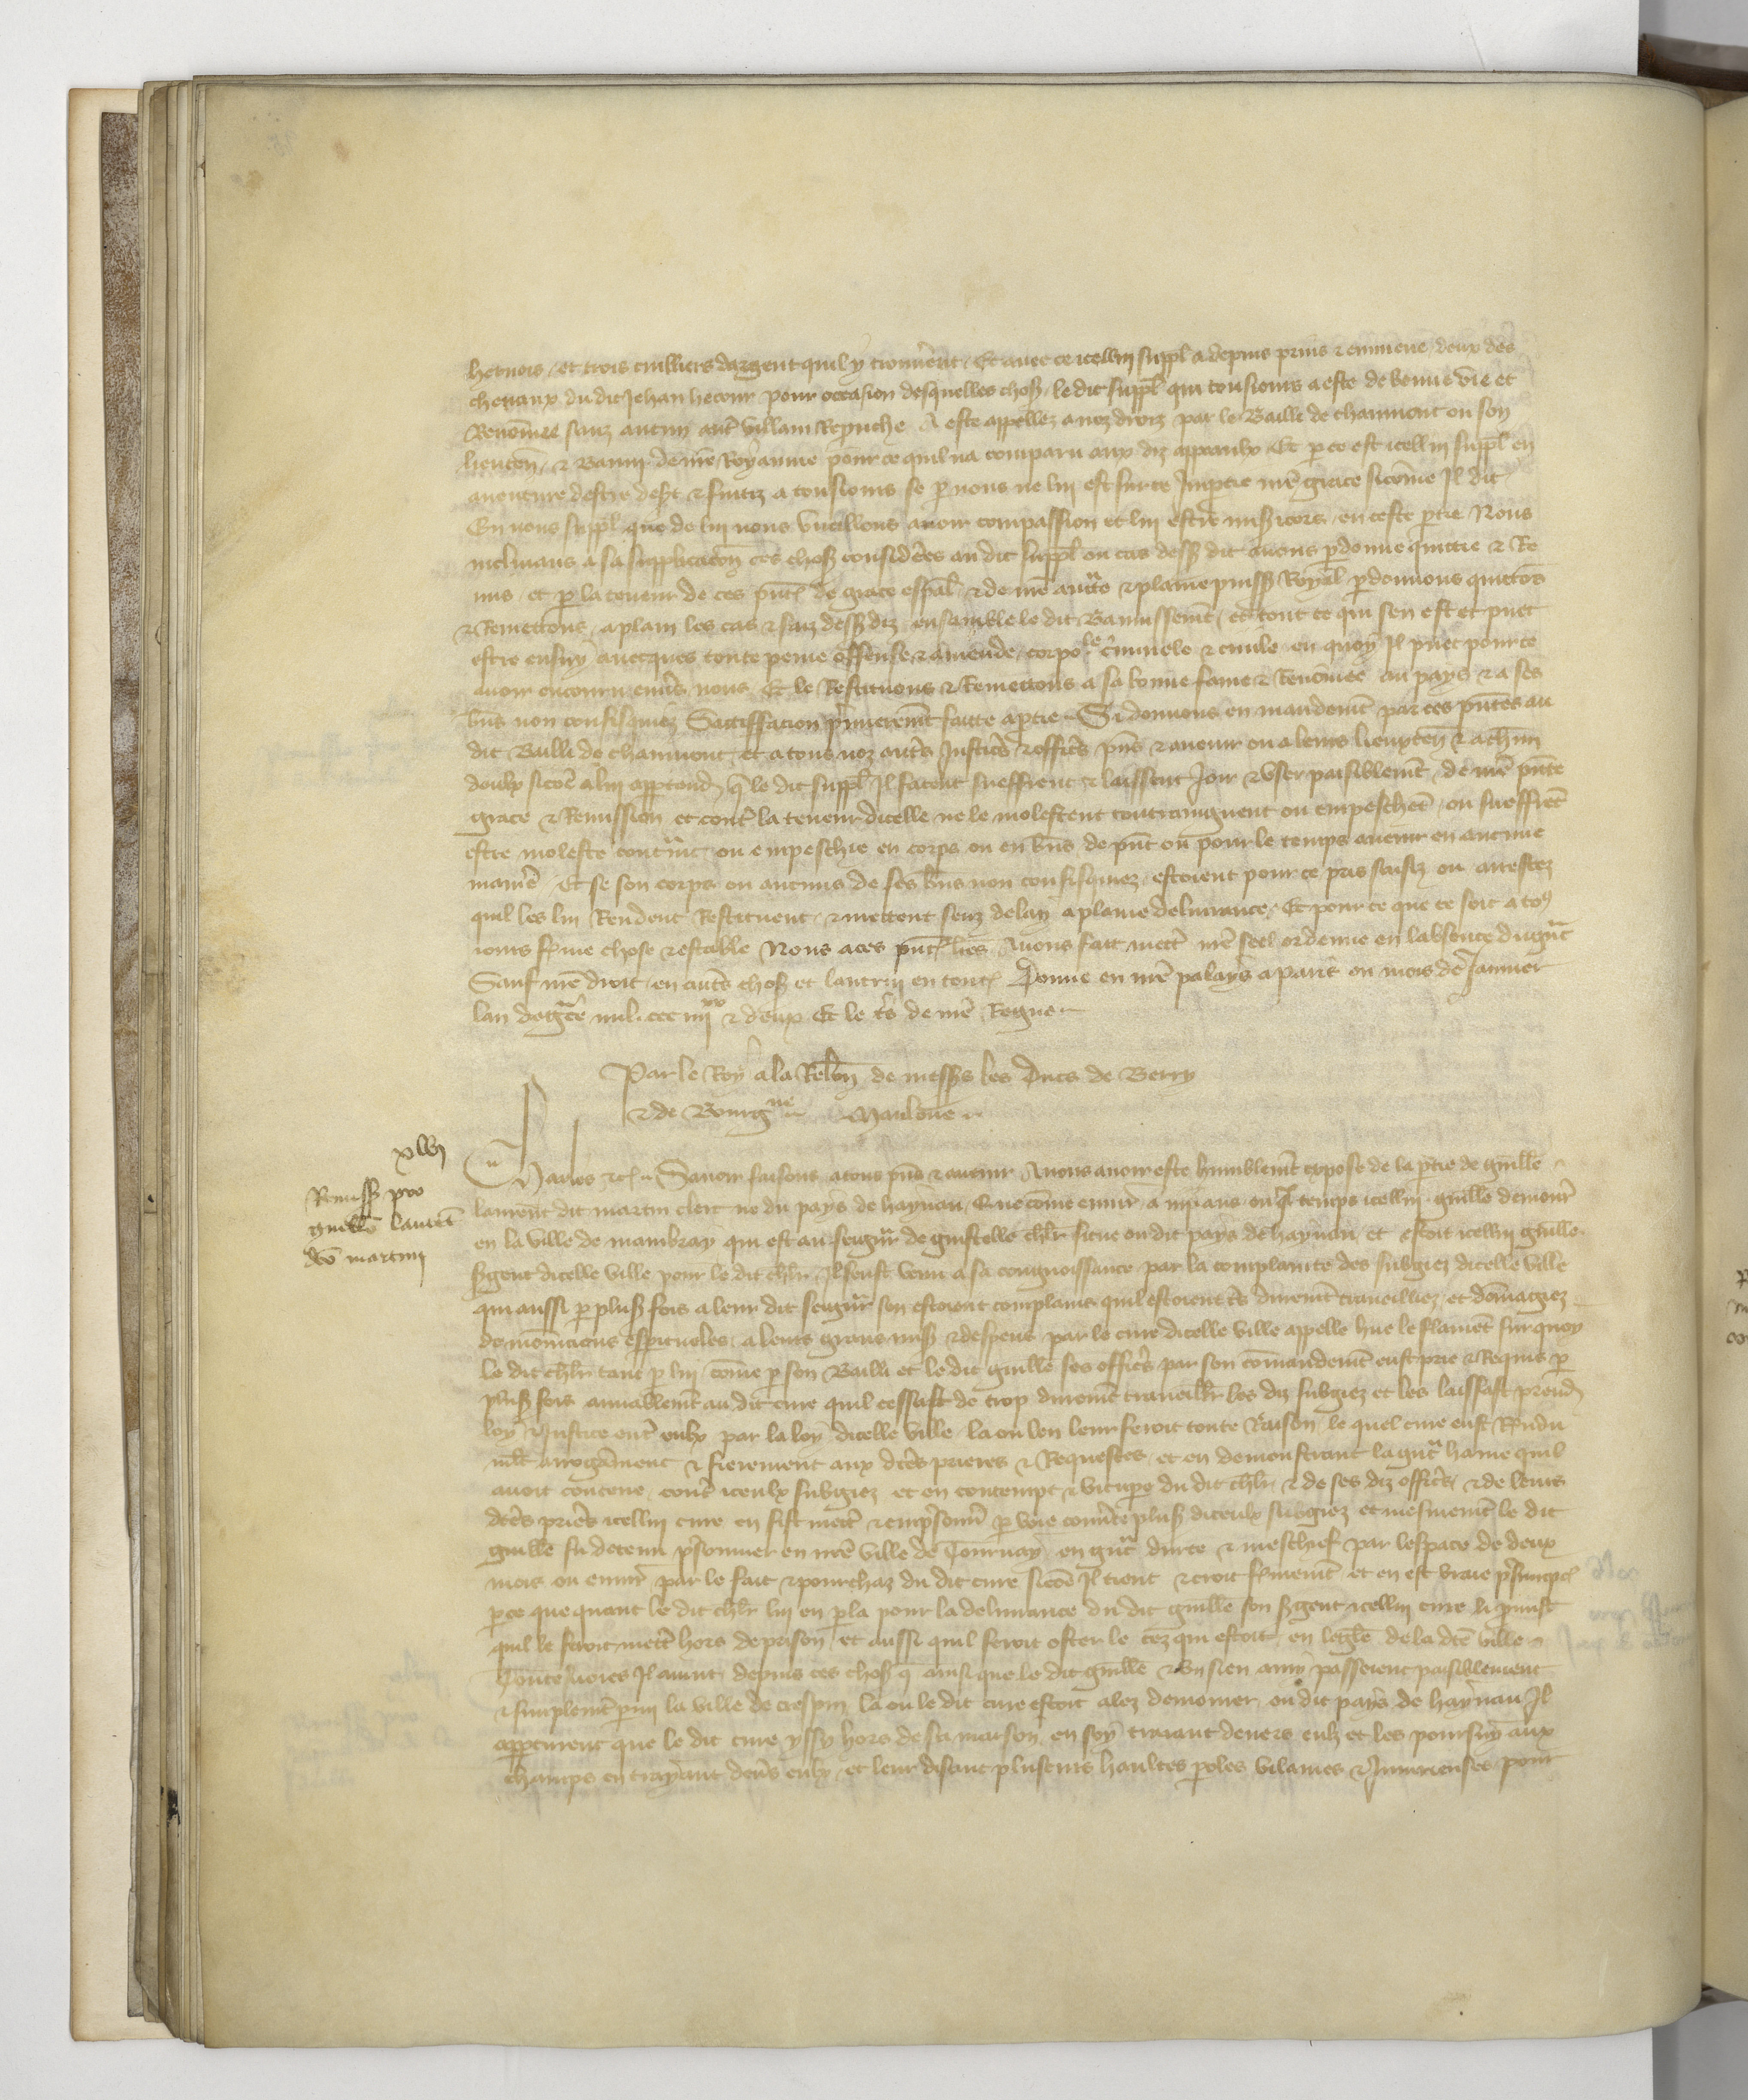 hernois, et trois cuilliers dargent quil y trouverent, Et avec ce icellui suppl a depuis prins & emmene, deux des
chevaux du dit Jehan hecour pour occasion desquelles choses, le dit suppl qui tousiours a este de bonne vie et
Renommee sanz aucun autre villain Reprouche A este appellez a noz droiz par le Bailli de chaumont ou son
lieuten, & Banni de nre Royaume pour ce quil na comparu aux diz appeaulx Et par ce est icellui suppl en
aventure destre desert & fuitiz a tousiours se par nous ne lui est sur ce Impartie nre grace sicomme Il dit
En nous suppl que de lui nous vueillons avoir compassion et lui estre misericors, en ceste partie Nous
inclinans a sa supplicacion ces choses considerees au dit suppl ou cas dessus dit avons pardonne quittie & Re
mis, et par la teneur de ces pntes de grace espal, & de nre auctorite & plaine puiss Royal pardonnons quittons
& Remettons, a plain les cas & faiz dess diz, ensamble le dit Bannissement, et tout ce qui sen est et puet
estre ensuy avecques toute peine offense & amende, corporele criminele & civile en quoy Il puet pour ce
avoir encouru envers nous Et le Restituons & Remettons a sa bonne fame & Renommee au pays & a ses
bns non confisquiez Sattiffacion premierement faitte a partie Si donnons en mandement par ces pntes au
dit Bailli de chaumont, et a tous noz autres Justiciers & officiers pns & avenir ou a leurs lieuxten & a chun
deulx sicomme a lui appartendra, q le dit suppl Il facent sueffrent & laissent Joir & user paisiblement, de nre pnte
grace & Remission et contre la teneur dicelle ne le molestent contraignent ou empeschent, ou sueffrent
estre moleste contraint, ou empeschie en corps ou en bns de pnt ou pour le temps avenir en aucune
maniere Et se son corps ou aucuns de ses bns non confisquiez, estoient pour ce pris saisiz ou arrestez
quil les lui Rendent Restituent, & mettent senz delay a plaine delivrance, Et pour ce que ce soit a tous
iours ferme chose & estable Nous a ces pntes lres Avons fait mettre nre seel ordenne en labsence du grant
Sauf nre droit, en autres choses et lautrui en toutes Donne en nre palays a Paris ou mois de Janvier
lan de grace mil ccc iiii xx & deux Et le tiers de nre Regne
Par le Roy a la Relacion de messrs les Ducs de Berry
& de Bourgne Mauloue
xlvi
Remiss pro
guillo laurent
dco martin
Charles &c Savoir faisons a tous pns & avenir Avons avoir este humblement expose de la partie de guille
laurent dit martin clerc ne du pays de haynau, Que comme environ a iii ans ou quel temps icellui guille demourast
en la ville de mambray qui est au seigneur de guistelle chlr situe ou dit pays de haynau, et estoit icellui guille
sergent dicelle ville pour le dit chlr Il feust venu a sa congnoissance par la complainte des subgiez dicelle ville
qui aussi par plus fois a leur dit seigneur sen estoient complains quil estoient tres durement traveilliez, et dommagiez
de monicions espituelles, a leurs grans miss & despens, par le cure dicelle ville appelle hue le flament Sur quoy
le dit chlr tant par lui, comme par son Bailli et le dit guille ses officiers par son commandement eust prie & Requis par
plus fois amiablement au dit cure quil cessast de trop durement traveillier les diz subgiez et les laissast prendre
loy & Justice entre eulx par la loy dicelle ville, la ou len leur feroit toute Raison, le quel cure eust Respondu
mlt arroganment & fierement aux dictes prieres & Requestes, et en demonstrant la grant haine quil
avoit conceue, contre iceulx subgiez et en contempt & vitupere du dit chlr, & de ses diz officiers, & de leurs
dctes prieres icellui cure en fist mettre & emprisonner par voie couverte plus diceulx subgiez et mesmement le dit
guille fu detenu prisonnier en nre ville de Tournay en grant durte & meschief par lespace de deux
mois ou environ par le fait & pourchaz du dit cure sicomme Il tient & croit fermement et en est vraie presumpcion
par ce que quant le dit chlr lui en parla pour la delivrance du dit guille son sergent icellui cure li promist
quil le feroit mettre hors de prison, et aussi quil feroit oster le cez qui estoit en leglise de la dte ville
Toutevoies Il avint, depuis ces choses q ainsi que le dit guille & un sien amy passoient paisiblement
& simplement parmi la ville de crespin, la ou le dit cure estoit alez demourer, ou dit pays de haynau Il
apperceurent que le dit cure yssy hors de sa maison, en soy traiant devers eulx et les poursuy aux
champs en trayant devers eulx, et leur disant plusieurs haultes paroles vilaines & Iniurieuses pour